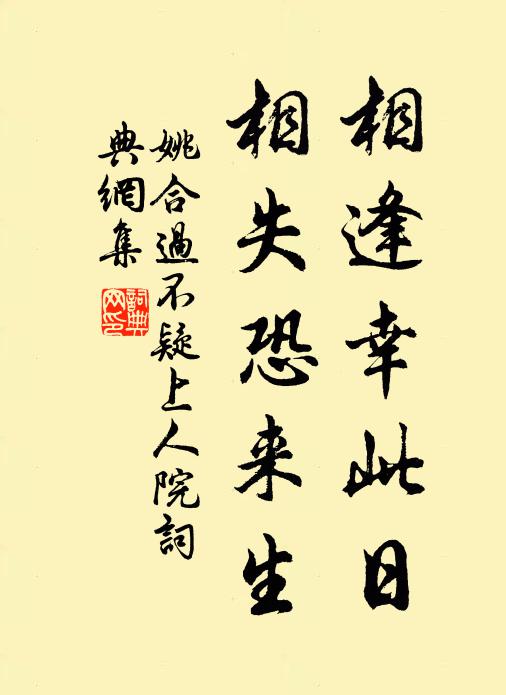 相逢幸此日
相失恐来生
姚合過不疑上人院詞
典網集
詞典
网印